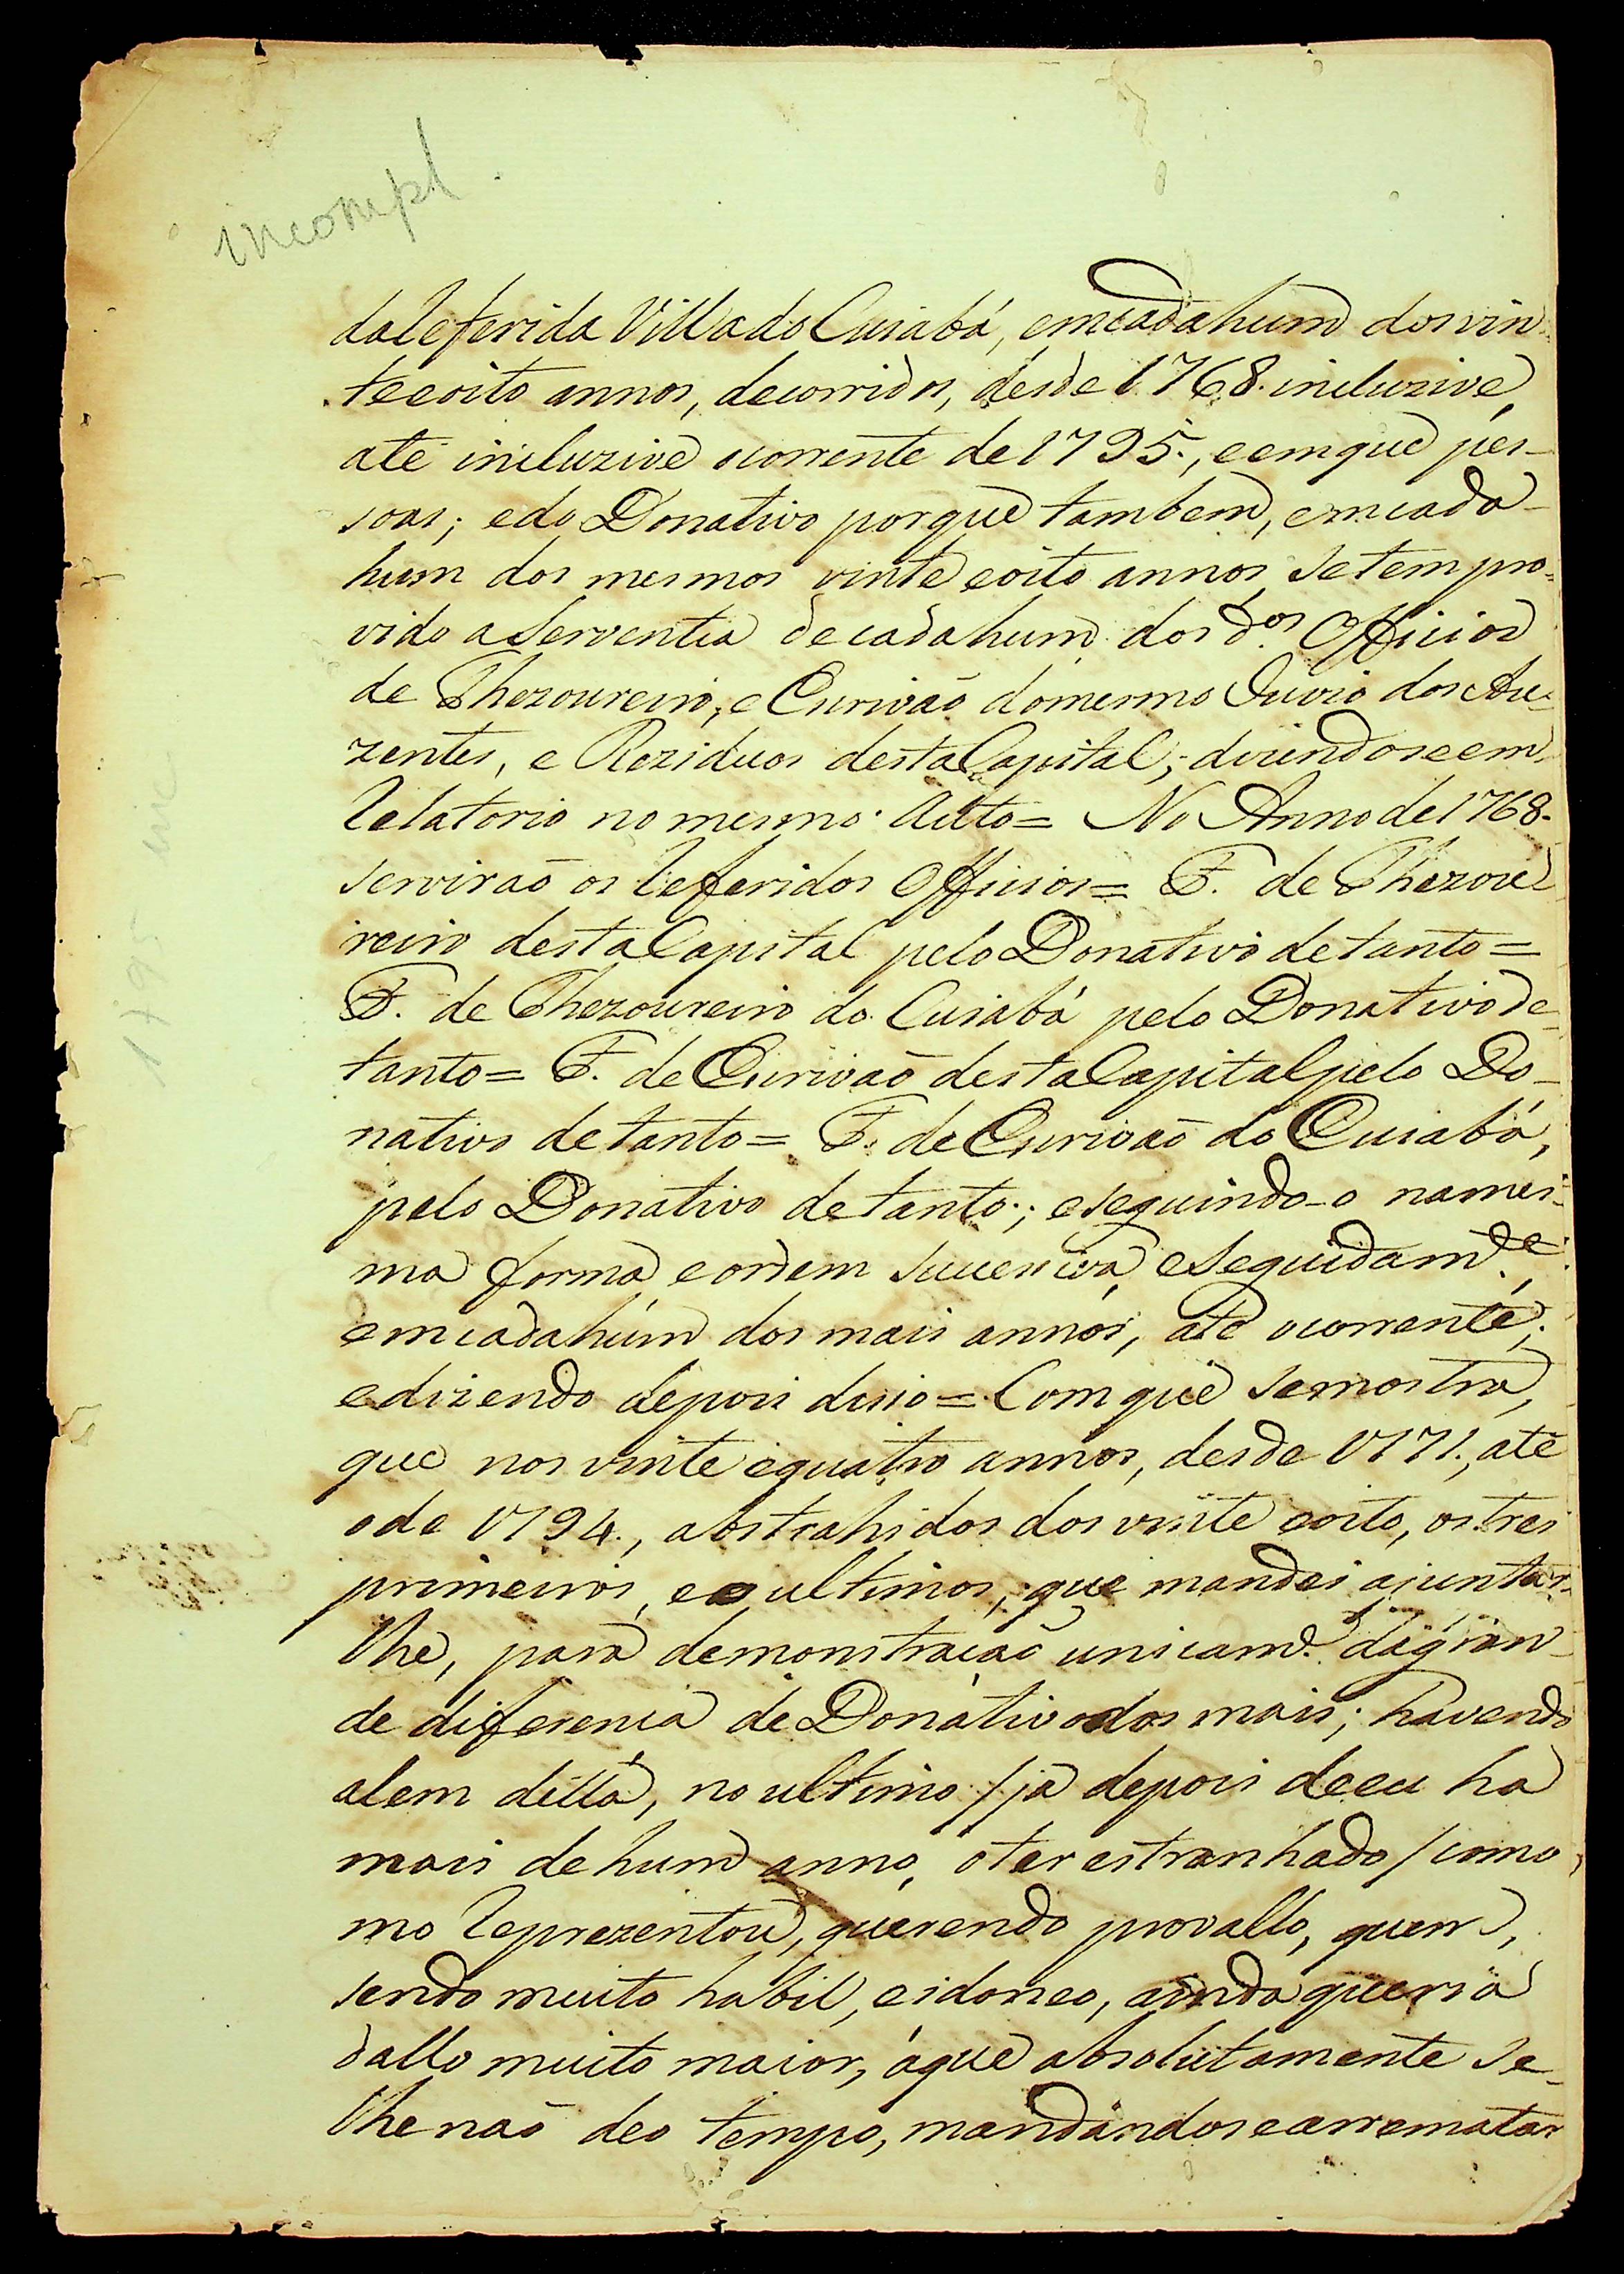 incompl.
da referida Villa do Cuiabá, em cada hum dos vin-
te e oito annos, decorridos, desde 1768. incluzive,
até incluzive o corrente de 1795., e em que pes-
soas; e do Donativo porque tambem, em cada
hum dos mesmos vinte e oito annos, se tem pro-
vido a Serventia de cada hum dos d.os Officios
de Thezoureiro, e Escrivão do mesmo Juizo dos Au-
zentes, e Reziduos desta Capital; dizendose em
relatorio no mesmo Auto= No Anno de 1768.
servirão os referidos Officios= F. de Thezou-
reiro desta Capital pelo Donativo de tanto=
F. de Thezoureiro do Cuiabá pelo Donativo de
tanto= F. de Escrivão desta Capital pelo Do-
nativo de tanto= F. de Escrivão do Cuiabá,
pelo Donativo de tanto; e seguindo-o na mes-
ma forma, e ordem successiva, e seguidam.te,
em cada hum dos mais annos, até o corrente;
e dizendo depois disso= Com que se mostra,
que nos vinte e quatro annos, desde 1771., até
o de 1794., abstrahidos dos vinte e oito, os tres
primeiros, e o ultimos, que mandei ajuntar-
lhe, para demonstração unicam.e da gran-
de diferença de Donativo dos mais; havendo
alem della, no ultimo /já depois de eu ha
mais de hum anno, o ter estranhado/ como
mo reprezentou, querendo provallo, quem,
sendo muito habil, e idoneo, ainda queria
dallo muito maior, áque absolutamente se-
lhe não deo tempo, mandandose arrematar
1795